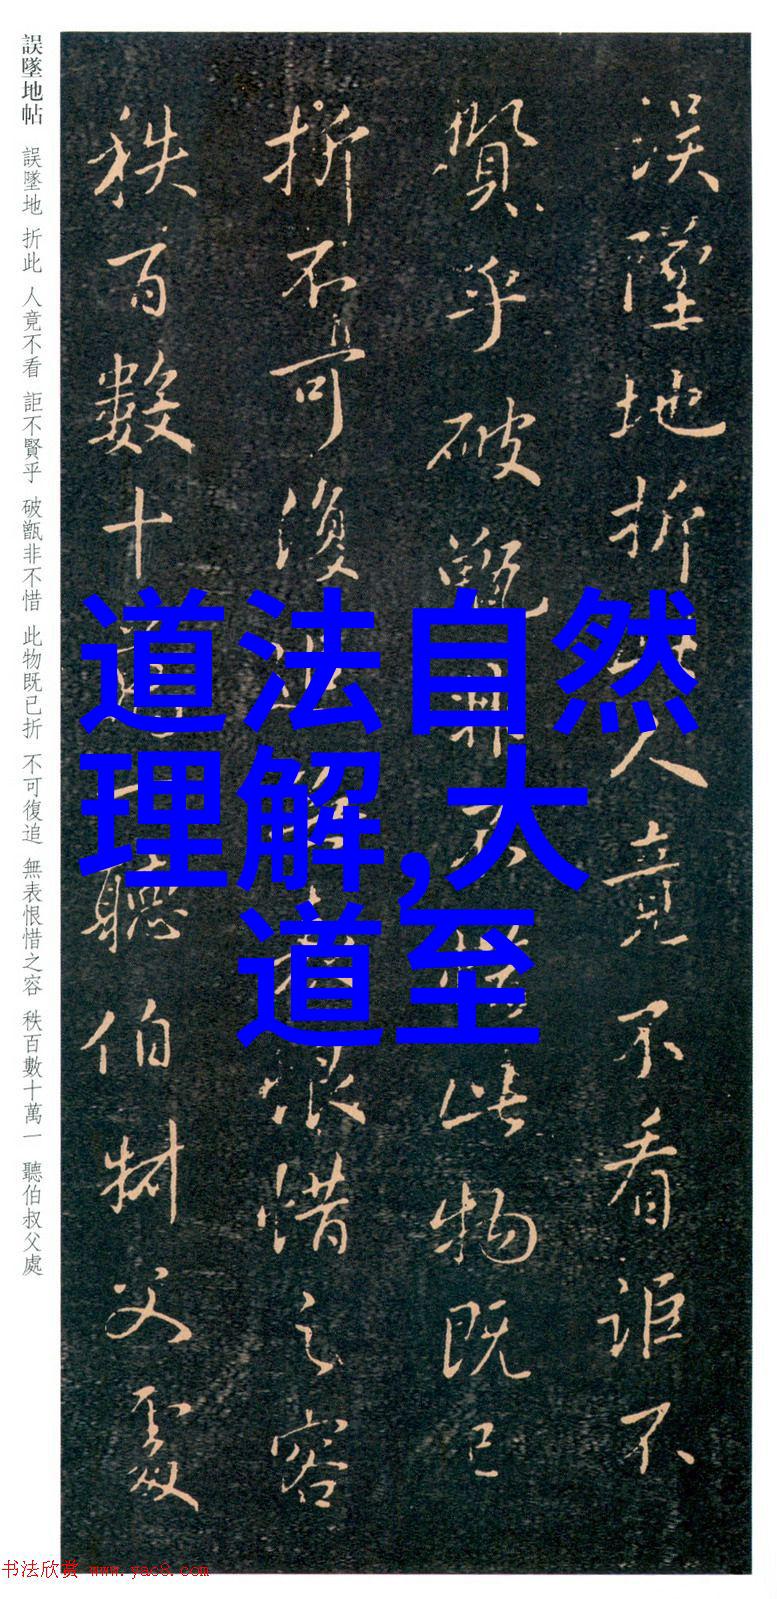 誤墜地帖 誤墜地 折此 人竟不看 詎不賢乎 破甑非不惜 此物既已折 不可復追 無表恨惜之容 秩百數十萬一 聽伯叔父處
誤墜地折此人竟不看詎不
賢乎破甑非不惜此物既已
折不可復追無表恨惜之容
秩百數十萬一聽伯叔父處
道法自然
理解,大
道至
书法欣赏 www.yac8.com